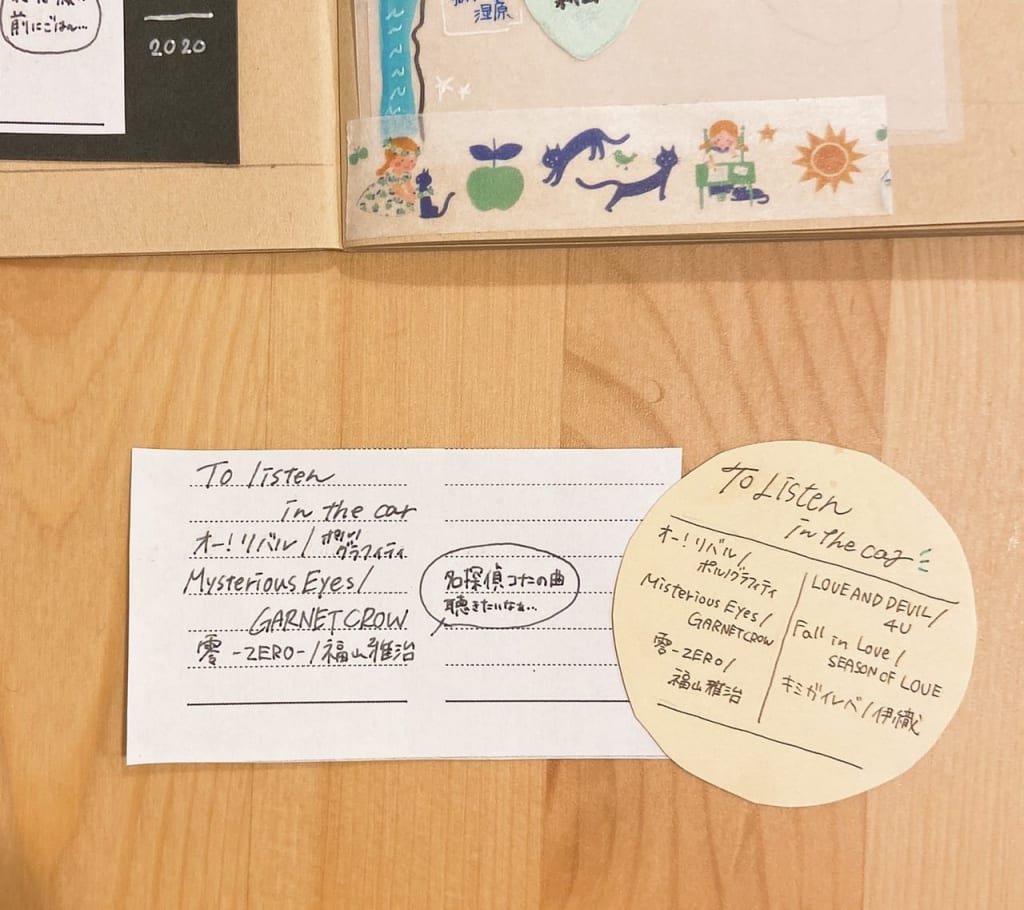 前にごはん…
2020
湿原
To listen
in the car
オー!リバル/ポルノグラフィティ
Mysterious Eyes/
GARNET CROW
零-ZERO-/福山雅治
名探偵コナンの曲
聴きたいなぁ…
To Listen
in the car
オー!リバル/
ポルノグラフィティ
Misterious Eyes/
GARNET CROW
零-ZERO/
福山雅治
LOVE AND DEVIL/
4U
Fall in Love/
SEASON OF LOVE
キミガイレバ/伊織